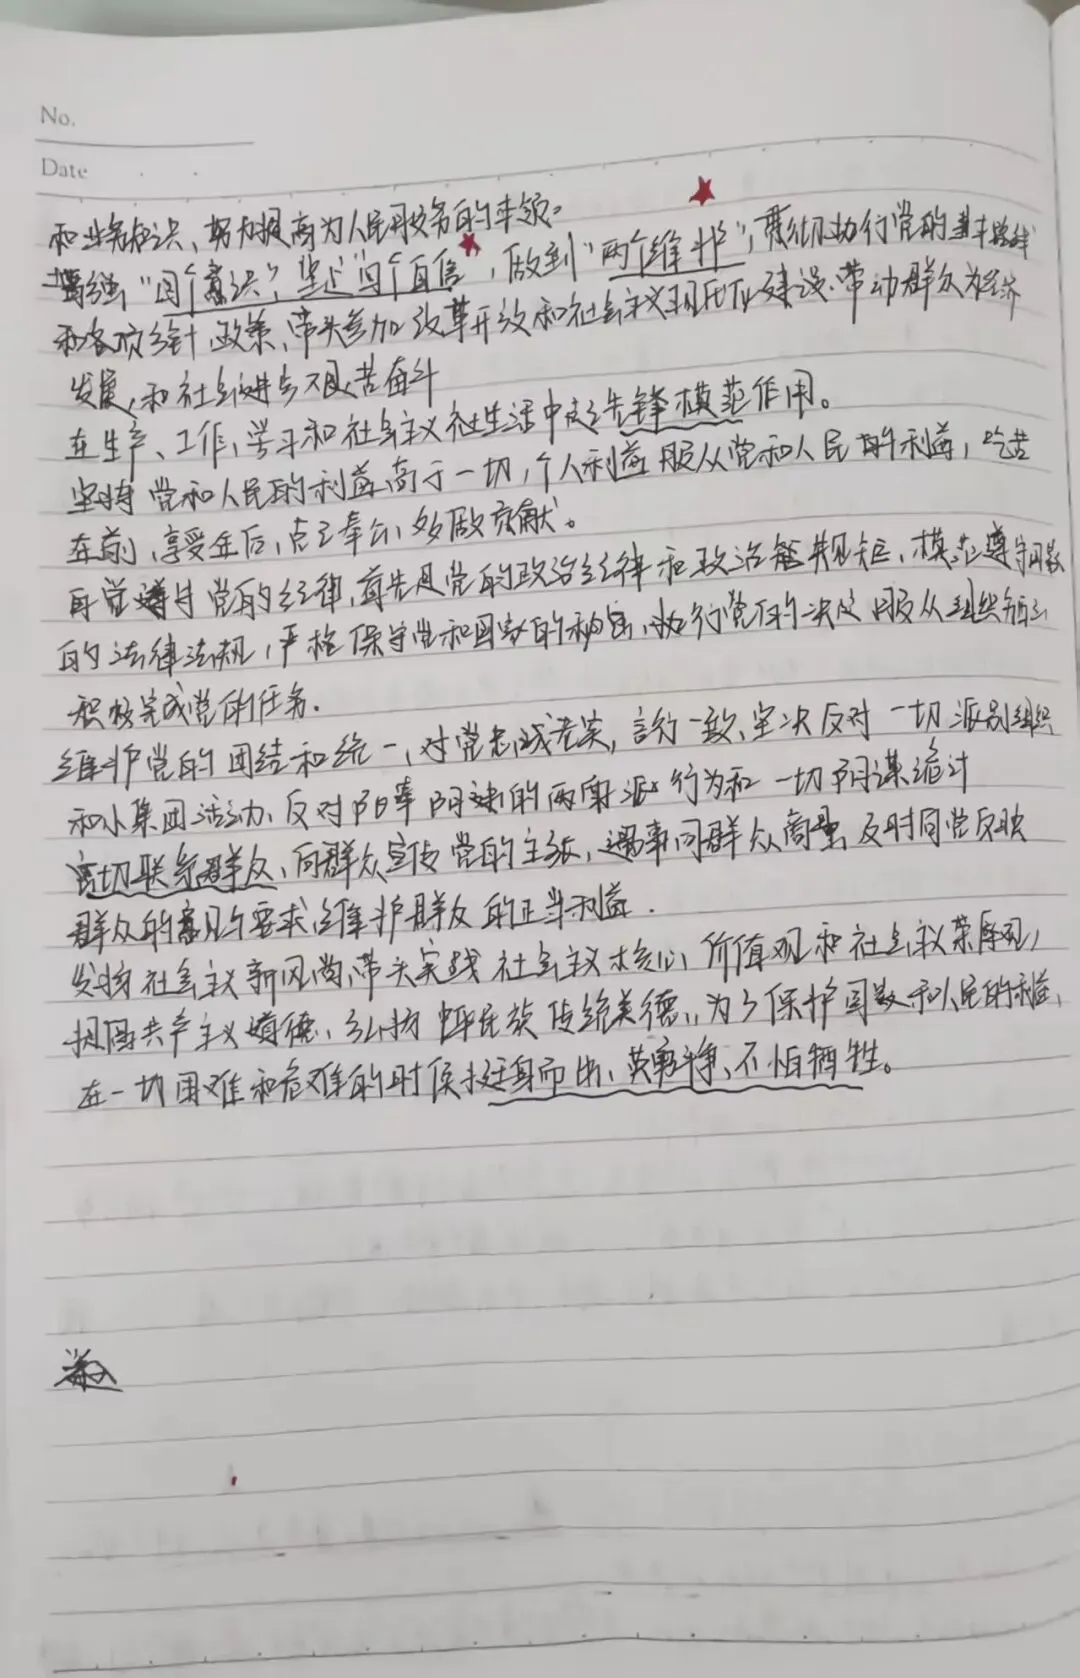 No.
Date
和业务知识、努力提高为人民服务的本领。
增强"四个意识",坚定"四个自信",做到"两个维护",贯彻执行党的基本路线
和各项方针、政策、带头参加改革开放和社会主义现代化建设、带动群众为经济
发展、和社会进步艰苦奋斗
在生产、工作、学习和社会主义社生活中起先锋模范作用。
坚持党和人民的利益高于一切,个人利益服从党和人民的利益,吃苦
在前、享受在后,克己奉公、多做贡献。
自觉遵守党的纪律,首先是党的政治纪律和政治规矩、模范遵守国家
的法律法规,严格保守党和国家的秘密、执行党的决定服从组织
积极完成党的任务.
维护党的团结和统一、对党忠诚老实,言行一致、坚决反对一切派别组织
和小集团活动、反对阳奉阴违的两面派行为和一切阴谋诡计
密切联系群众、向群众宣传党的主张,遇事同群众商量及时向党反映
群众的意见与要求维护群众的正当利益.
发扬社会主义新风尚,带头实践社会主义核心、价值观和社会主义荣辱观,
提倡共产主义道德、弘扬中华民族传统美德,为了保护国家和人民的利益,
在一切困难和危难的时候挺身而出、英勇斗争、不怕牺牲。